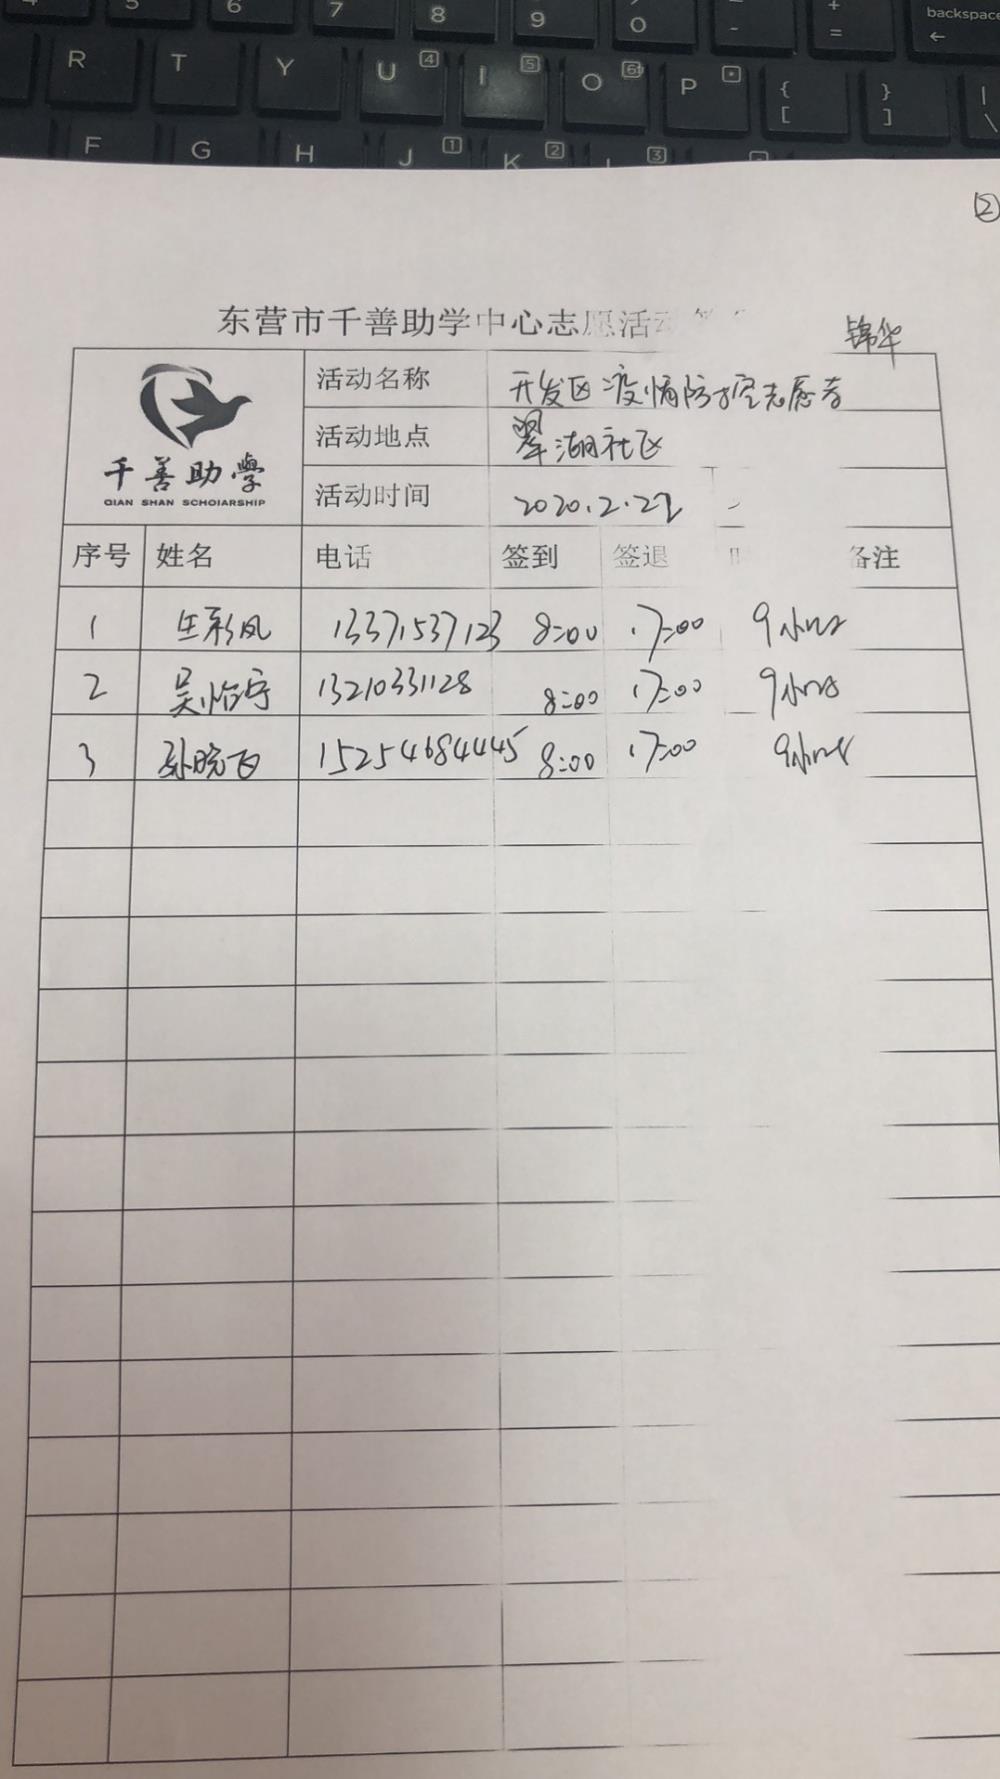 5 6 7 8 9 ) 0 - - + = backspace ←
R T Y U 4 I 5 O 6 P * { [ } ] | \
F G H J 1 K 2 L 3
②
东营市千善助学中心志愿活动
锦华
千善助學
QIAN SHAN SCHOIARSHIP
活动名称 开发区疫情防控志愿者
活动地点 翠湖社区
活动时间 2020.2.22
序号 姓名 电话 签到 签退 时 备注
1 生彩凤 13371537123 8:00 17:00 9小时
2 吴怡宁 13210331128 8:00 17:00 9小时
3 孙晓飞 15254684445 8:00 17:00 9小时